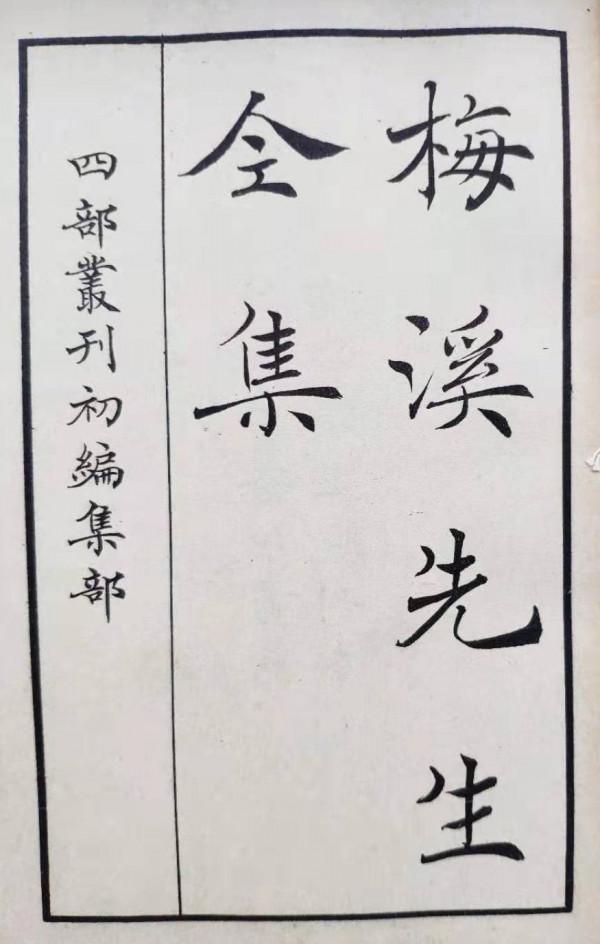 梅溪先生
全集
四部叢刊初編集部